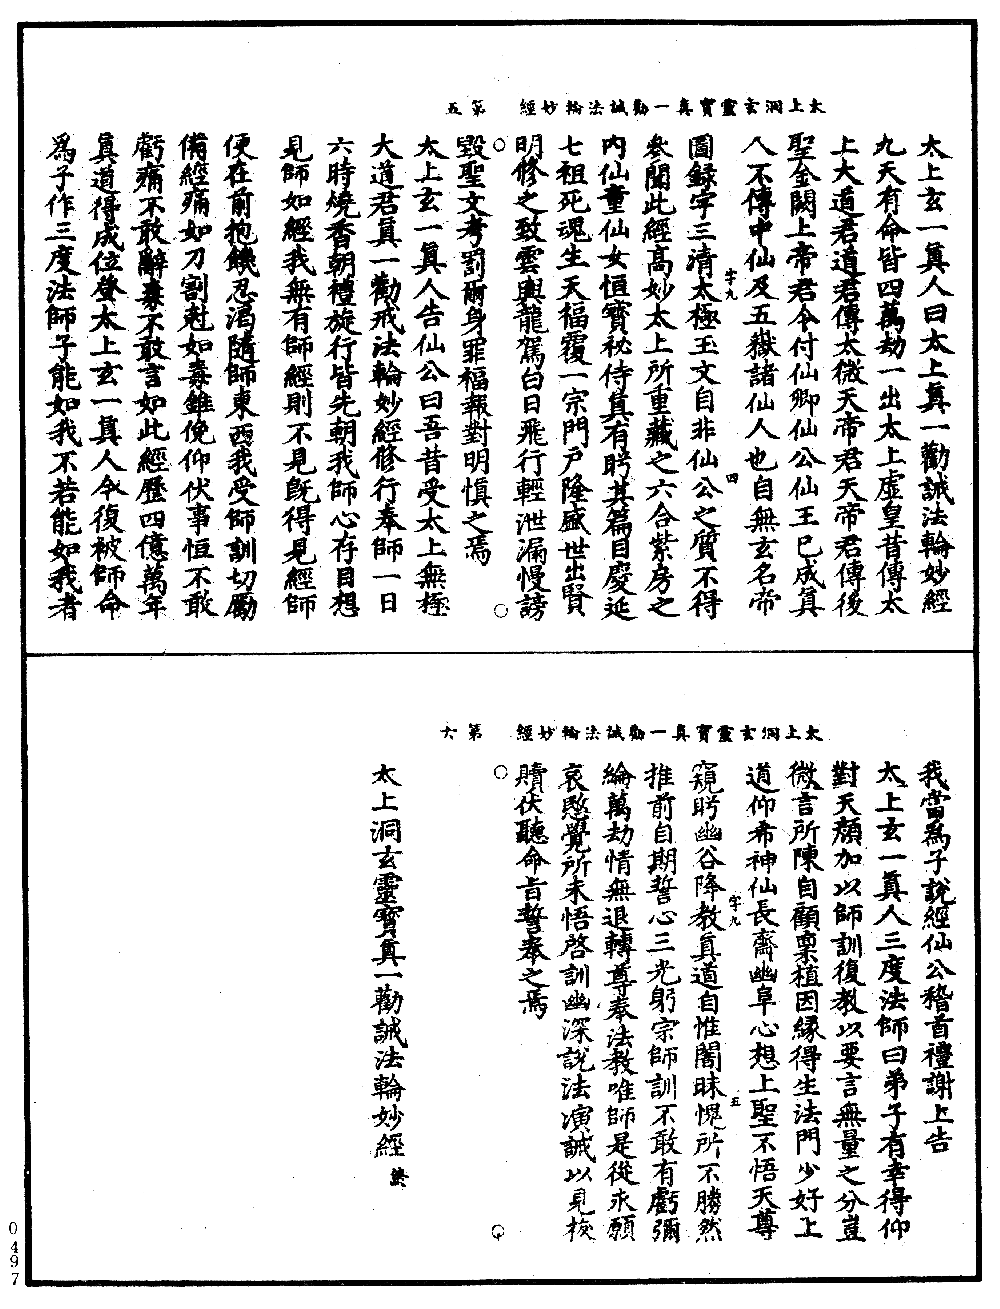 太上洞玄靈寶真一勸誡法輪妙經　第五
太上玄一真人曰太上真一勸誡法輪妙經
九天有命皆四萬劫一出太上虛皇昔傳太
上大道君道君傳太微天帝君天帝君傳後
聖金闕上帝君令付仙卿仙公仙王已成真
人不傳中仙及五嶽諸仙人也自無玄名帝
字九　四
圖錄字三清太極玉文自非仙公之質不得
參聞此經高妙太上所重藏之六合紫房之
內仙童仙女恒寶祕侍真有眄其篇目慶延
七祖死魂生天福覆一宗門戶隆盛世出賢
明修之致雲輿龍駕白日飛行輕泄漏慢謗
毀聖文考罰爾身罪福報對明慎之焉
太上玄一真人告仙公曰吾昔受太上無極
大道君真一勸戒法輪妙經修行奉師一日
六時燒香朝禮旋行皆先朝我師心存目想
見師如經我無有師經則不見既得見經師
便在前抱饑忍渴隨師東西我受師訓切勵
備經痛如刀割尅如毒錐俛仰伏事恒不敢
虧痛不敢辭毒不敢言如此經歷四億萬年
真道得成位登太上玄一真人今復被師命
為子作三度法師子能如我不若能如我者
太上洞玄靈寶真一勸誡法輪妙經　第六
我當為子說經仙公稽首禮謝上告
太上玄一真人三度法師曰弟子有幸得仰
對天顏加以師訓復教以要言無量之分豈
微言所陳自顧稟植因緣得生法門少好上
道仰希神仙長齋幽阜心想上聖不悟天尊
字九　五
窺眄幽谷降教真道自惟闇昧愧所不勝然
推前自期誓心三光躬宗師訓不敢有虧彌
綸萬劫情無退轉尊奉法教唯師是從永願
哀愍覺所未悟啓訓幽深說法演誡以見拔
贖伏聽命旨誓奉之焉
太上洞玄靈寶真一勸誡法輪妙經
0497